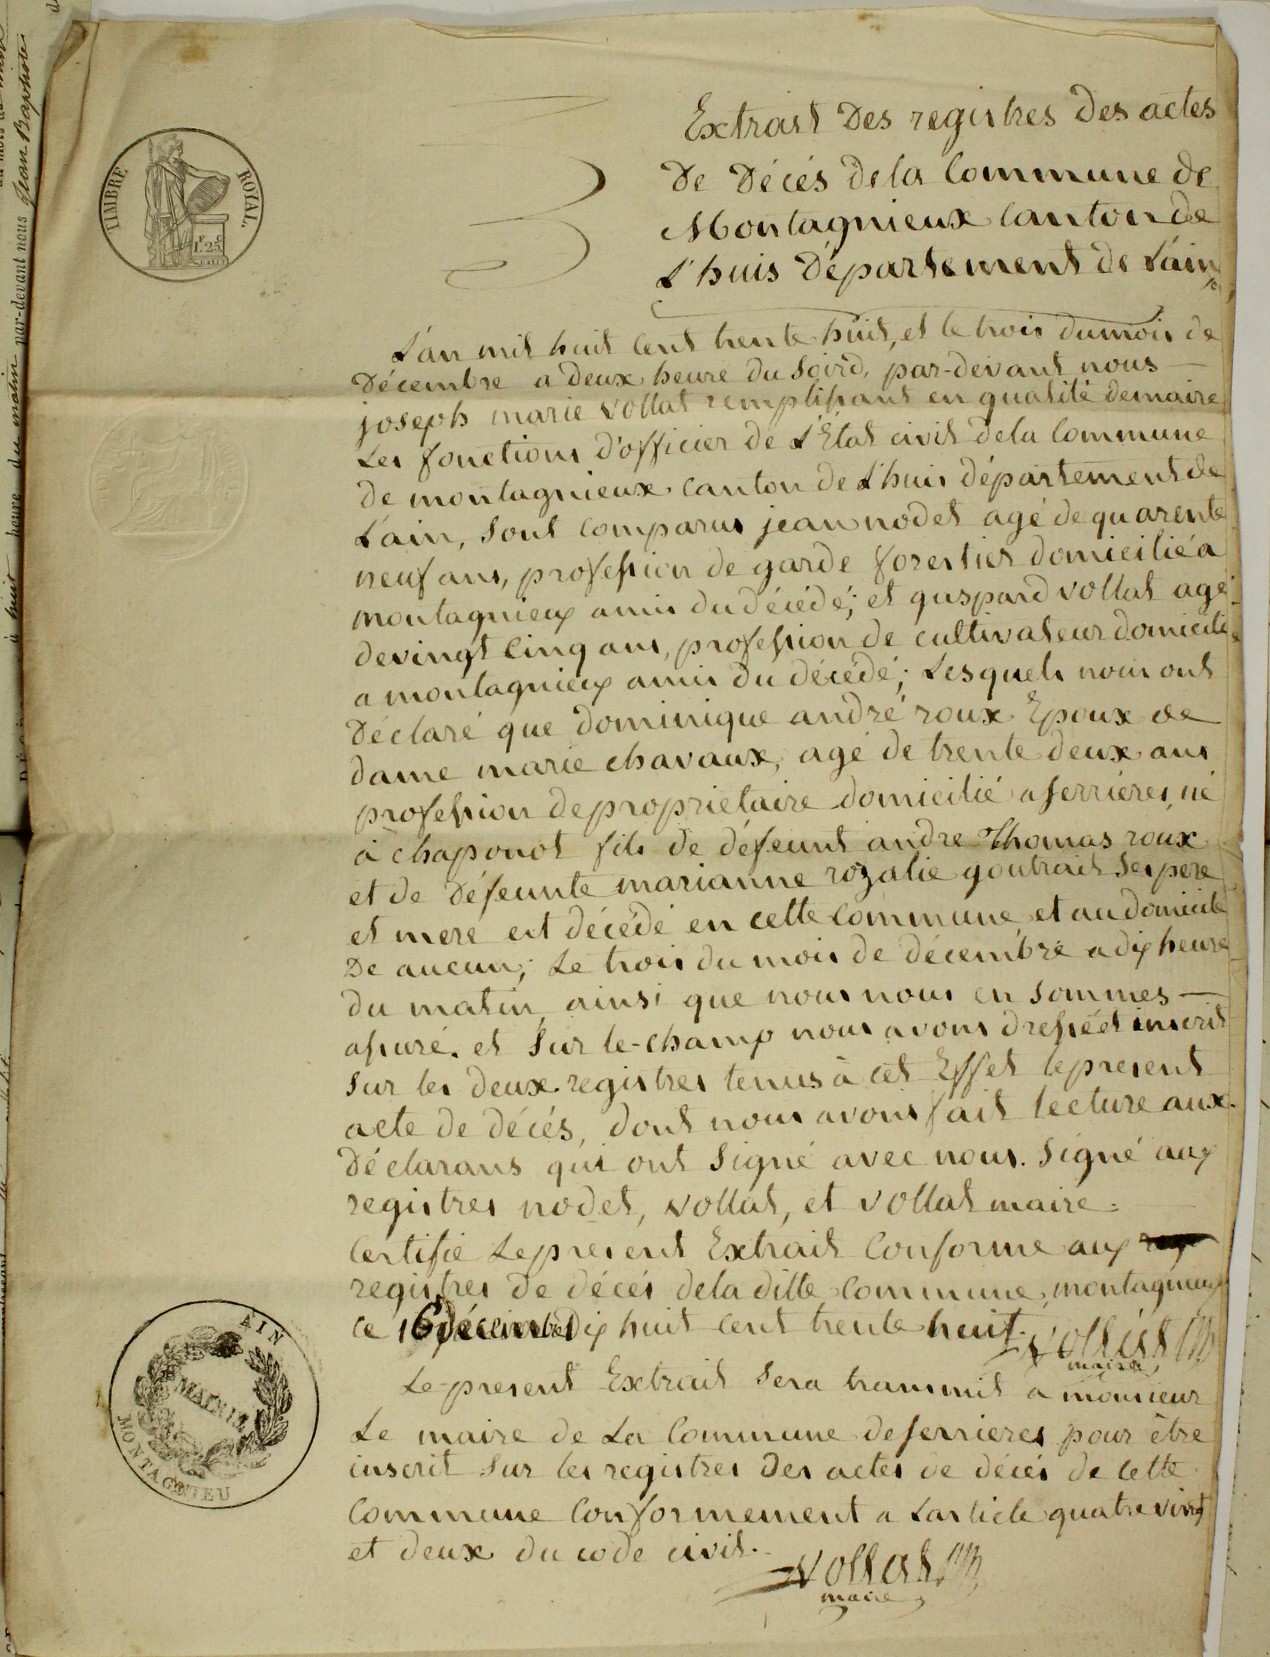 Extrait Des registres Des actes
De Décés de la Commune de
Montagnieux Canton de
L'huis Département de L'ain
3
TIMBRE ROYAL.
1F 25C
L'an mil huit Cent trente huit, et le trois du mois de
Décembre a deux heure du Soird, par-devant nous
joseph marie Vollat remplissant en qualité de maire
Les fonctions d'officier de L'État civil de la Commune
de montagnieux canton de L'huis département de
L'ain, Sont Comparus jean nodet agé de quarente
neuf ans, profession de garde forestier domicilié a
montagnieux amis du décédé; et guspard vollat agé
de vingt Cinq ans, profession de cultivateur domicilié
a montagnieux amis du décédé; Lesquels nous ont
Déclaré que dominique andré roux Epoux de
dame marie chavaux, agé de trente deux ans
profession de proprietaire domicilié a ferriéres, né
à chaponot fils de défeunt andre Thomas roux
et de Défeunte marianne rozalie goutrait Ses pere
et mere est décédé en cette Commune et au domicile
De aucun; Le trois du mois de décembre a dix heure
du matin, ainsi que nous nous en Sommes
assuré. et Sur le-champ nous avons dressé et inscrit
Sur les deux registres tenus à cet Effet le present
acte de décés, dont nous avons fait lecture aux
Déclarans qui ont Signé avec nous. Signé aux
registres nodet, vollat, et vollat maire.
Certifié Le present Extrait Conforme aux
registres de décés de la ditte Commune, montagnieux
ce 16 décembre Dix huit Cent trente huit. Vollat
maire
Le present Extrait Sera transmit a monsieur
Le maire de La Commune de ferrieres pour être
inscrit Sur les registres Des actes de décés de Cette
Commune Conformement a Larticle quatre vingt
et deux du code civil.
Vollat
maire
AIN
MAIRIE
MONTAGNIEU
à huit heure du matin par-devant nous Jean Baptiste